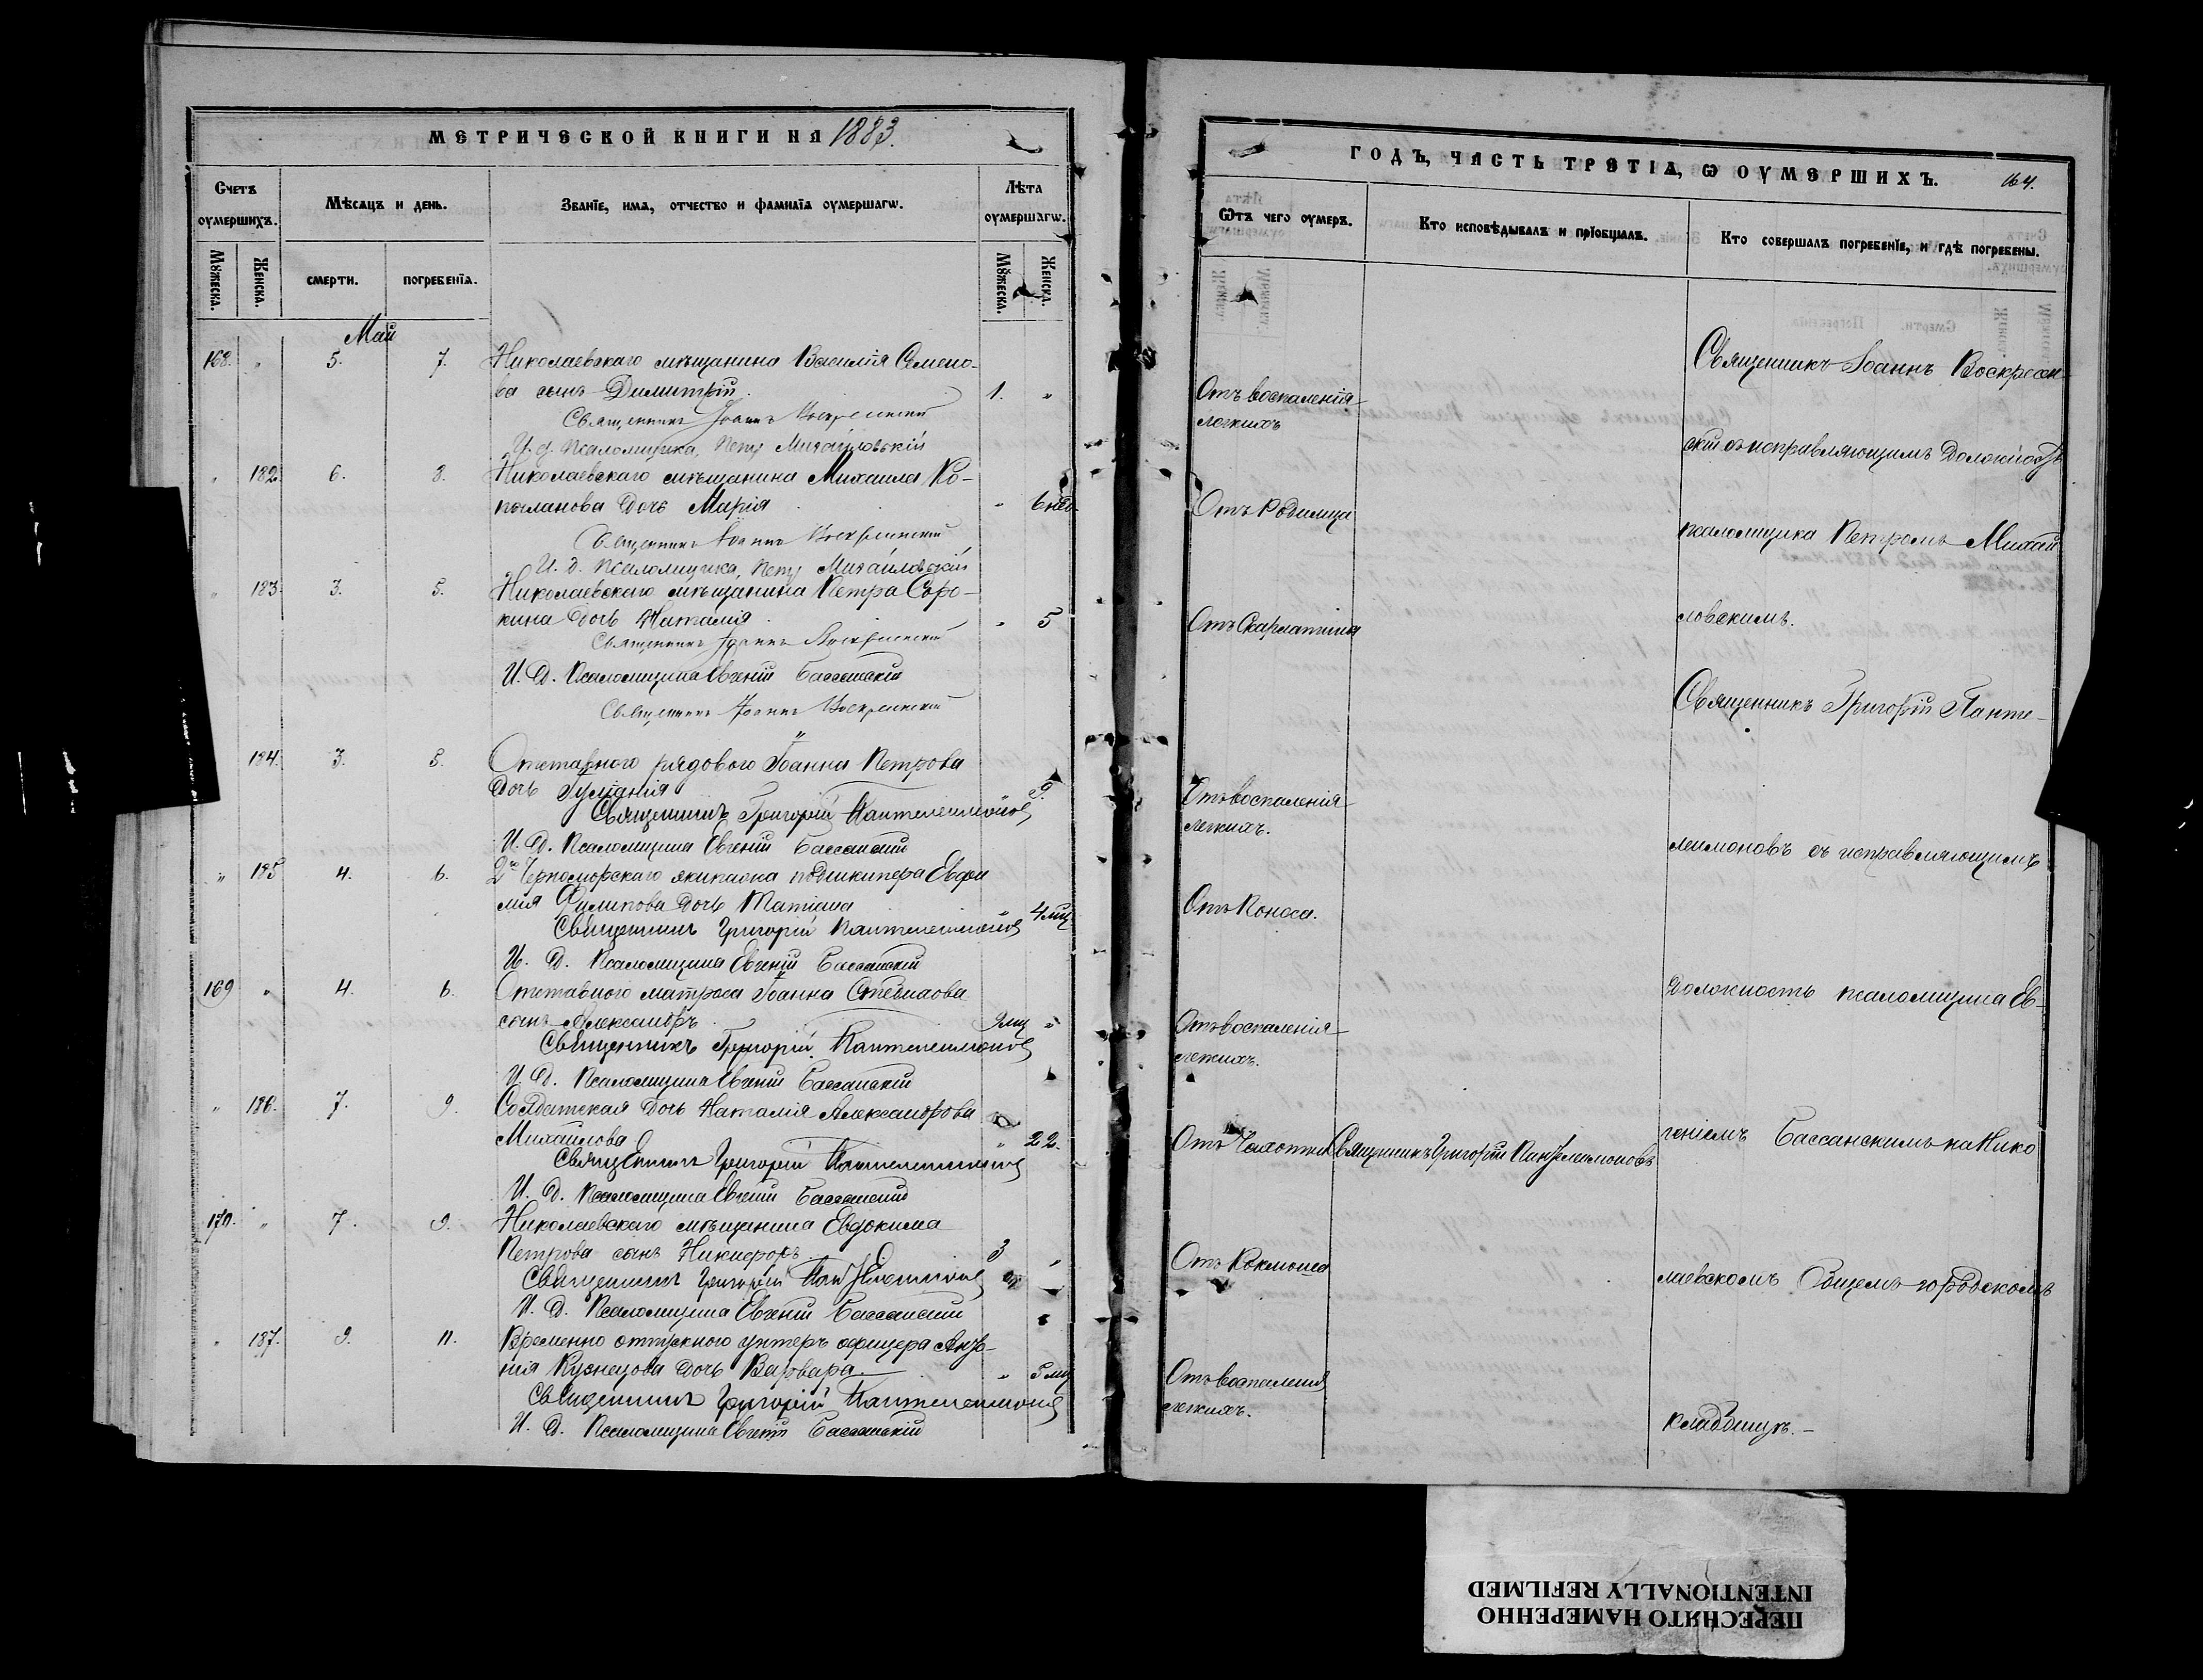 МЕТРИЧЕСКОЙ КНИГИ НА 1883.
Счетъ оумершихъ.
Мѣсяцъ и день.
Званїе, имя, отчество и фамилїя оумершагѡ.
Лѣта оумершагѡ.
Мꙋжеска. Женска. смерти. погребенїя. Мꙋжеска. Женска.
Май
168. " 5. 7. Николаевскаго мѣщанина Василія Семено-
ва сынъ Димитрій. 1. "
Священникъ Іоаннъ Воскресенскій
И. д. Псаломщика, Петр Михайловскій
" 182. 6. 8. Николаевскаго мѣщанина Михаила Ко-
пыланова дочь Марія " 6 нед.
Священникъ Іоаннъ Воскресенскій
И. д. Псаломщика, Петр Михайловскій
" 183. 3. 5. Николаевскаго мѣщанина Петра Соро-
кина дочь Наталія " 5
Священникъ Іоаннъ Воскресенскій
И. Д. Псаломщика Евгеній Бассанскій
Священникъ Іоаннъ Воскресенскій
184. 3. 8. Отставного рядового Іоанна Петрова
дочь Іуліанія 9.
Священникъ Григорій Пантелеимонов
И. Д. Псаломщика Евгеній Бассанскій
" 185 4. 6. 2го Черноморскаго экипажа подшкипера Евфи
мія Филипова дочь Татіана 4 мц.
Священникъ Григорій Пантелеимонов
И. Д. Псаломщика Евгеній Бассанскій
169 " 4. 6. Отставного матроса Іоанна Степанова
сынъ Александръ 9 мц "
Священникъ Григорій Пантелеимонов
И. Д. Псаломщика Евгеній Бассанскій
" 186. 7. 9. Солдатская дочь Наталія Александрова
Михайлова " 22.
Священникъ Григорій Пантелеимонов
И. Д. Псаломщика Евгеній Бассанскій
170. " 7. 9. Николаевскаго мѣщанина Евдокима
Петрова сынъ Никифоръ 3 "
Священникъ Григорій Пантелеимонов
И. Д. Псаломщика Евгеній Бассанскій
" 187. 9. 11. Временно отпускного унтеръ офицера Анто-
нія Кузнецова дочь Варвара " 5 мц
Священникъ Григорій Пантелеимонов
И. Д. Псаломщика Евгеній Бассанскій
ГОДЪ, ЧАСТЬ ТРЕТІА, Ѡ ОУМЕРШИХЪ. 164.
Ѿтъ чего оумеръ.
Кто исповѣдывалъ и прїобщалъ.
Кто совершалъ погребенїе, и гдѣ погребены.
Отъ воспаленія
легкихъ
Отъ Родимца
Отъ Скарлатины
Отъ воспаленія
легкихъ.
Отъ Поноса.
Отъ воспаленія
легкихъ.
Отъ Чахотки Священникъ Григорій Пантелеимоновъ
Отъ Коклюша
Отъ воспаленія
легкихъ.
Священникъ Іоаннъ Воскресен-
скій съ исправляющимъ Должность
псаломщика Петромъ Михай
ловскимъ.
Священникъ Григорій Панте-
леимоновъ съ исправляющимъ
Должность псаломщика Ев-
геніемъ Бассанскимъ на Нико
лаевскомъ Общемъ городскомъ
кладбищѣ.-
ПЕРЕСНЯТО НАМЕРЕННО
INTENTIONALLY REFILMED